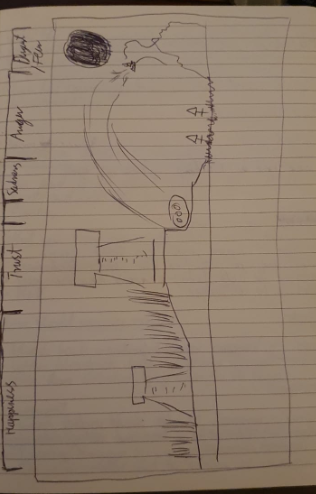 Happiness
Trust
Sadness
Anger
Disgust
/Fear